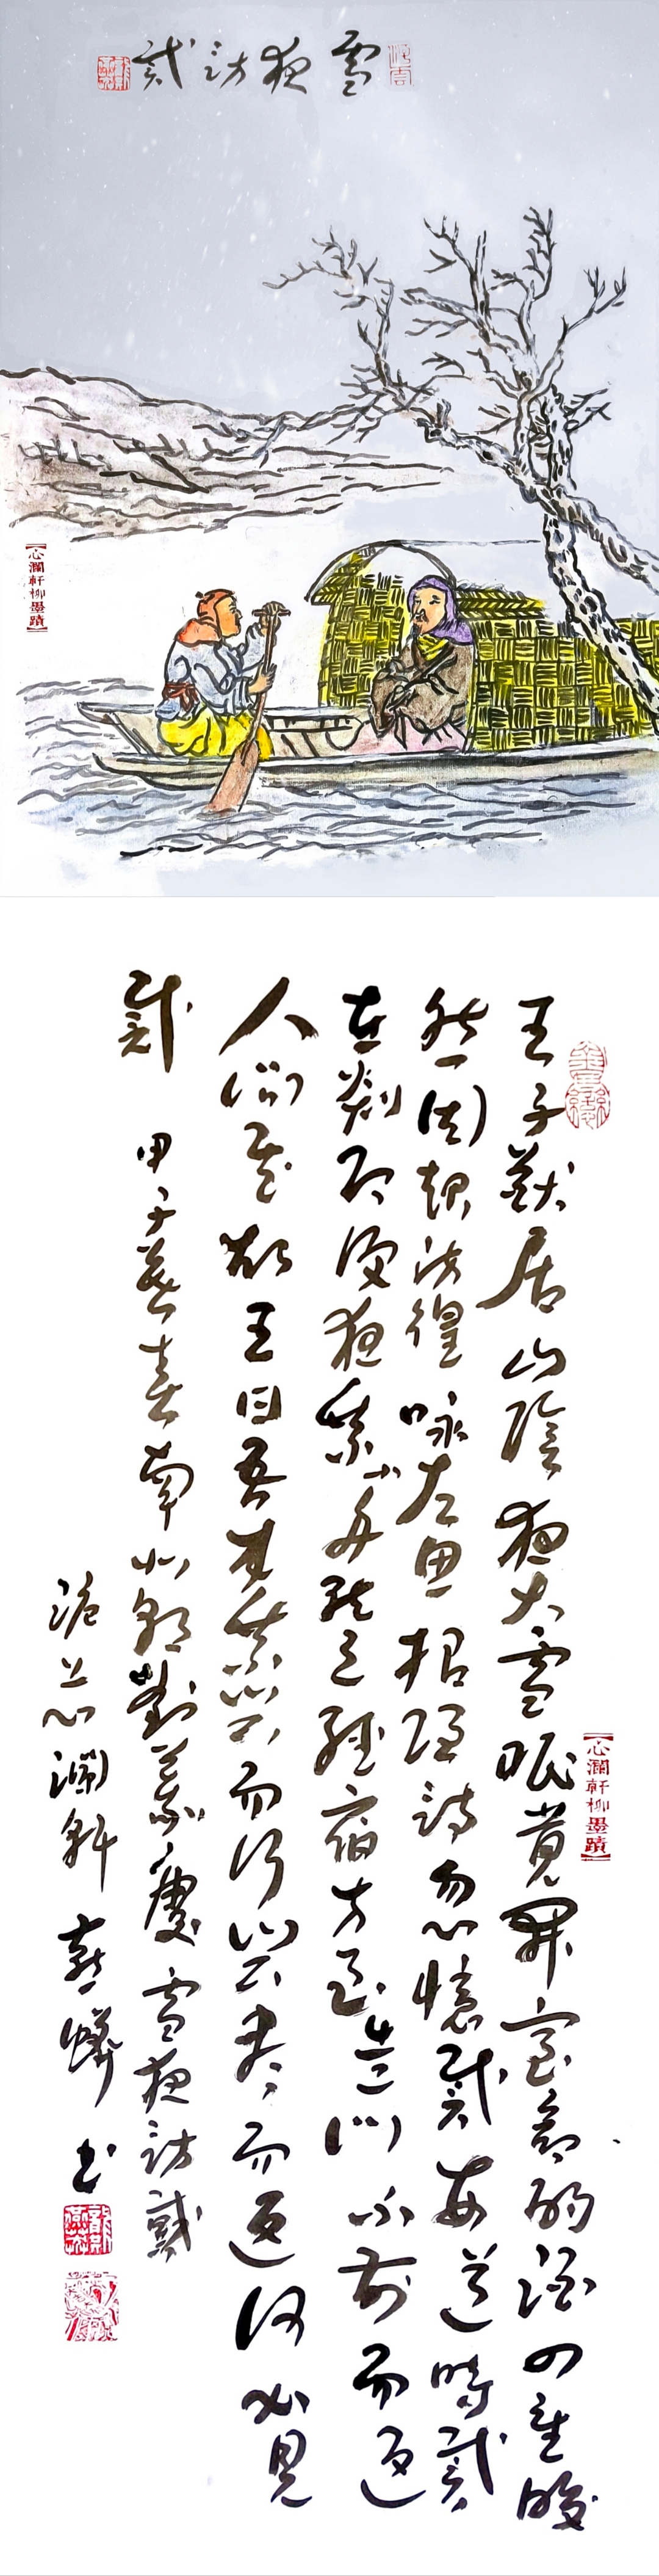 雪夜訪戴
心瀾軒柳墨蹟
王子猷居山陰夜大雪眠覺開室命酌酒四望皎
然因起彷徨咏左思招隱詩忽憶戴安道時戴
在剡即便夜乘小舟就之經宿方至造門不前而返
人問其故王曰吾本乘興而行興盡而返何必見
戴 甲子 春 南 雪夜訪戴
心瀾軒 書
心瀾軒柳墨蹟